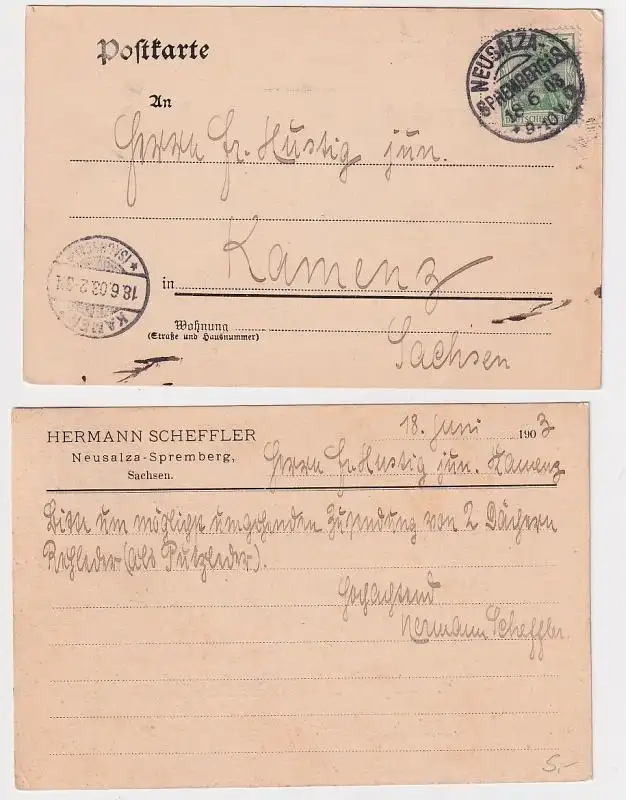 Postkarte
NEUSALZA-
SPREMBERG i. S.
18 6 03
* 9-10 V.
An
Herrn Fr. Hustig jun.
Kamenz
in
KAMENZ
18.6.03.2-3N
* (SACHSEN) *
Wohnung
(Straße und Hausnummer)
Sachsen
HERMANN SCHEFFLER
Neusalza-Spremberg,
Sachsen.
18. Juni 1903
Herrn Fr. Hustig jun. Kamenz
Bitte um möglichst umgehenden Zusendung von 2 Dächern
Rehleder (als Putzleder).
Hochachtend
Hermann Scheffler
5,-